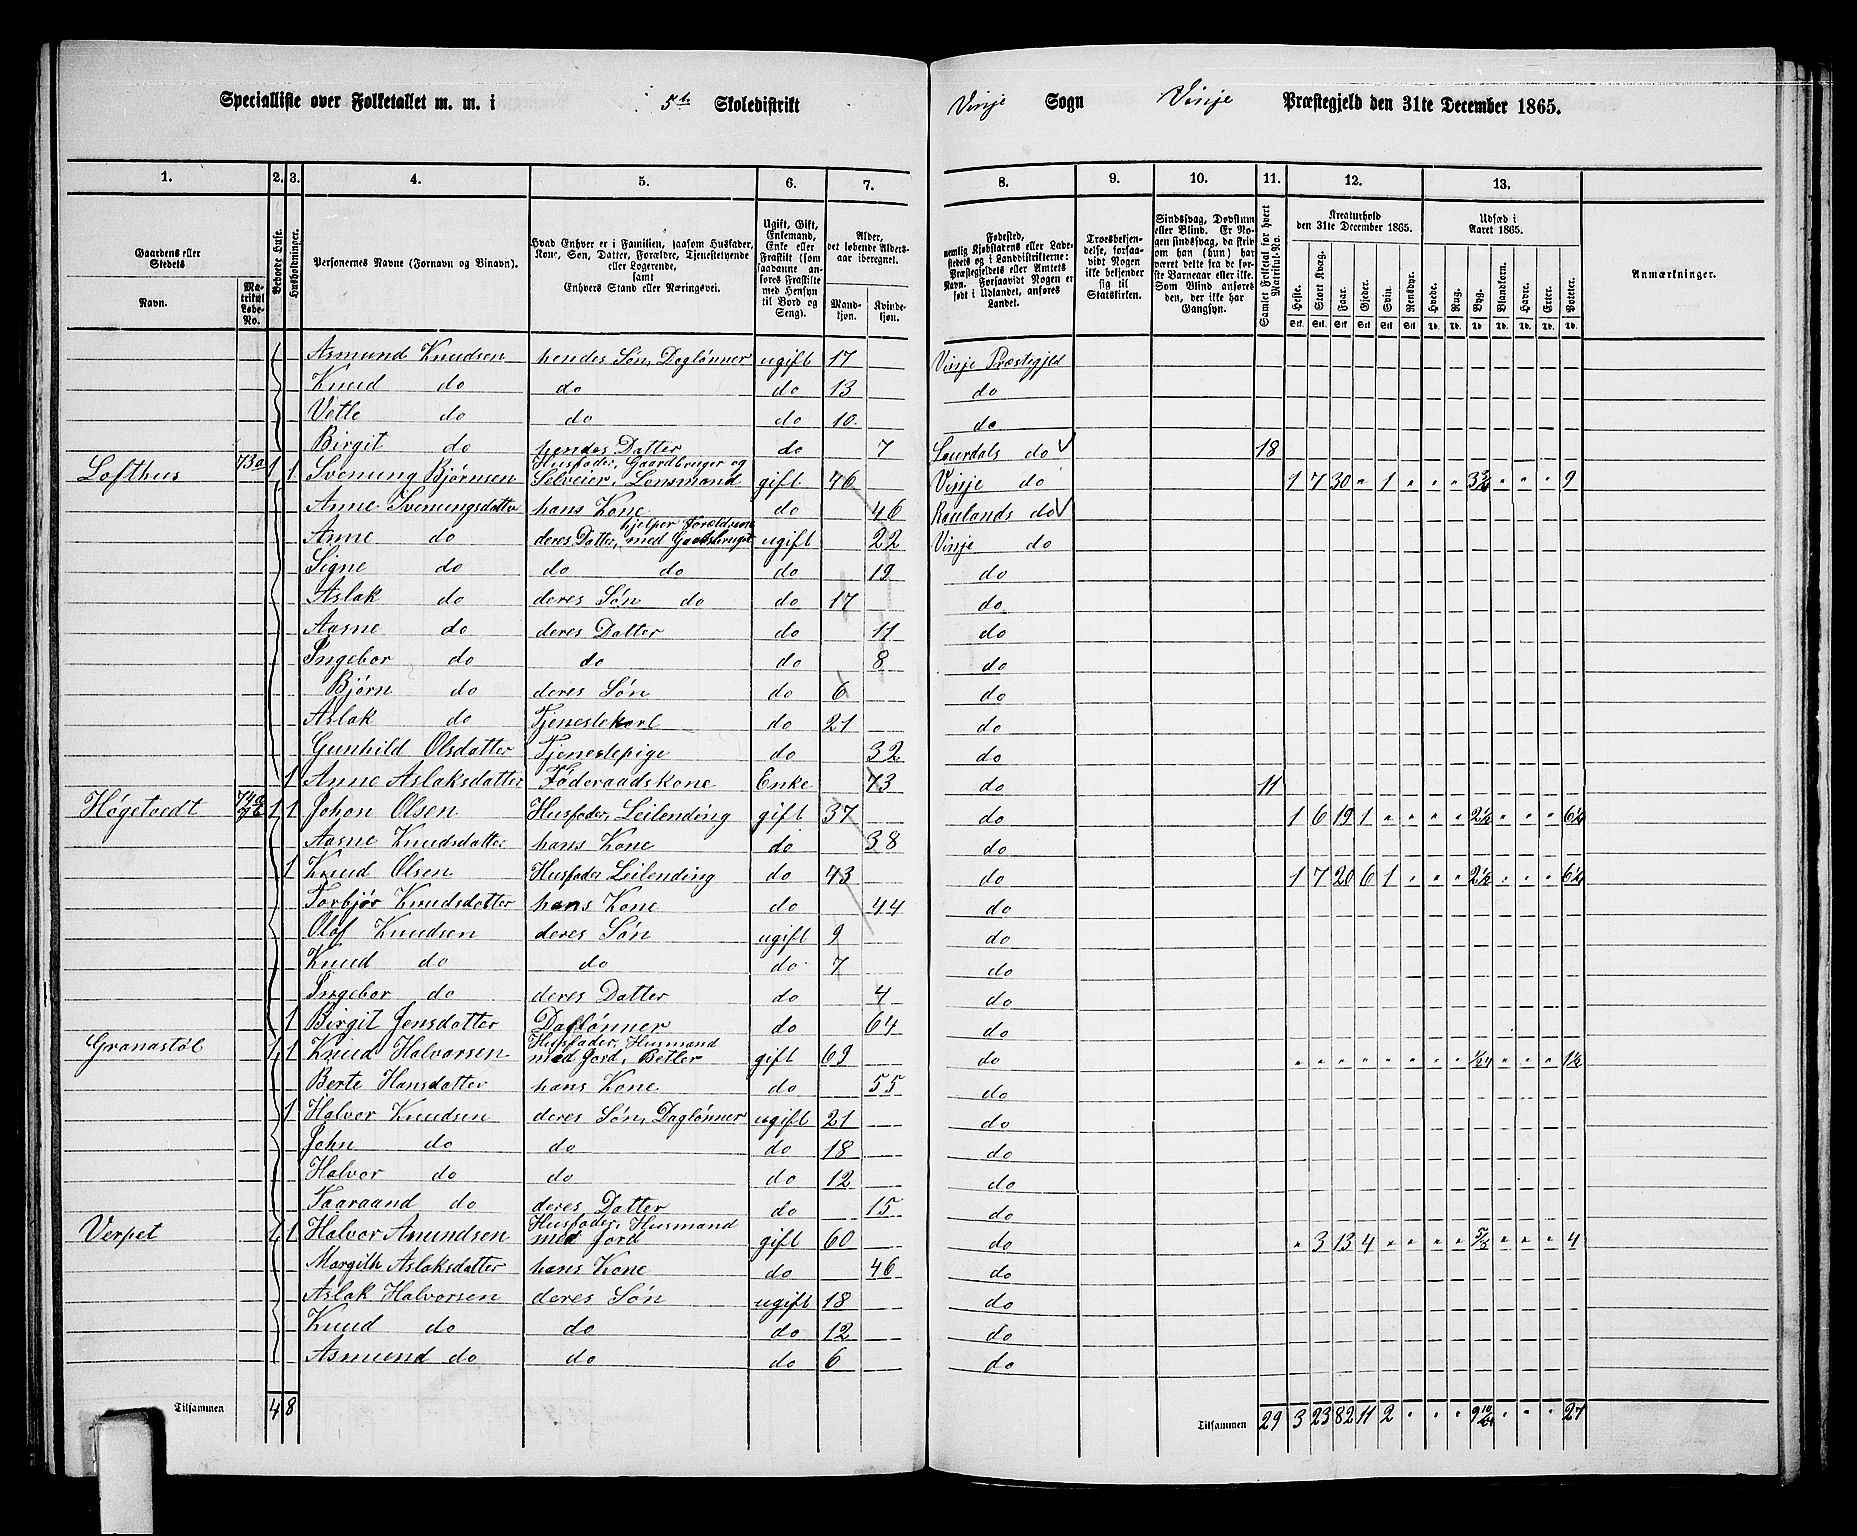 Specialliste over Folketallet m. m. i 5te Skoledistrikt Vinje Sogn Vinje Præstegjeld den 31te December 1865.
1. 2. 3. 4. 5. 6. 7. 8. 9. 10. 11. 12. 13.
Gaardens eller Stedets
Navn. Matrikul Løbe-No.
Beboede Huse.
Husholdninger.
Personernes Navne (Fornavn og Binavn).
Hvad Enhver er i Familien, saasom Husfader, Kone, Søn, Datter, Forældre, Tjenestetyende eller Logerende, samt Enhvers Stand eller Næringsvei.
Ugift, Gift, Enkemand, Enke eller Fraskilt (som saadanne anføres Fraskilte med Hensyn til Bord og Seng).
Alder, det løbende Alders-aar iberegnet.
Mandkjøn. Kvindekjøn.
Fødested, nemlig Kjøbstadens eller Ladestedets og i Landdistrikterne: Præstegjeldets eller Amtets Navn. Forsaavidt Nogen er født i Udlandet, anføres Landet.
Troesbekjendelse, forsaavidt Nogen ikke bekjender sig til Statskirken.
Sindssvag, Døvstum eller Blind. Er Nogen sindssvag, da skrives om han (hun) har været dette fra de første Barneaar eller ikke. Som Blind ansees den, der ikke har Gangsyn.
Samlet Folketal for hvert Matrikul-No.
Kreaturhold den 31te December 1865.
Heste. Stort Kvæg. Faar. Gjeder. Svin. Rensdyr.
Udsæd i Aaret 1865.
Hvede. Rug. Byg. Blankorn. Havre. Erter. Poteter.
Anmærkninger.
Asmund Knudsen hendes Søn, Daglønner ugift 17 Vinje Præstegjeld
Knud do do do 13 do
Vetle do do do 10 do
Birgit do hendes Datter do 7 Laurdals do 18
Lofthus 73a 1 1 Svenung Bjørnsen Husfader, Gaardbruger og Selveier, Lensmand gift 46 Vinje do 1 7 30 " 1 " " " 3 3/4 " " " 9
Anne Svenungsdatter hans Kone do 46 Raulands do
Anne do deres Datter, hjelper Forældrene med Gaardsbruget ugift 22 Vinje do
Signe do do do do 19 do
Aslak do deres Søn do do 17 do
Aasne do deres Datter do 11 do
Ingebor do do do 8 do
Bjørn do deres Søn do 6 do
Aslak do Tjenestekarl do 21 do
Gunhild Olsdatter Tjenestepige do 32 do
1 Anne Aslaksdatter Føderaadskone Enke 73 do 11
Høgetvedt 74a 1 1 Johan Olsen Husfader, Leilending gift 37 do 1 6 19 1 " " " " 2 1/2 " " " 6 1/4
Aasne Knudsdatter hans Kone do 38 do
1 Knud Olsen Husfader Leilending do 43 do 1 7 20 6 1 " " " 2 1/2 " " " 6 1/4
Torbjør Knudsdatter hans Kone do 44 do
Olaf Knudsen deres Søn ugift 9 do
Knud do do do 7 do
Ingebor do deres Datter do 4 do
1 Birgit Jensdatter Daglønner do 64 do
Granastøl 1 1 Knud Halvorsen Husfader, Husmand med Jord, Betler gift 69 do " " " " " " " " 1/24 " " " 1 1/2
Berte Hansdatter hans Kone do 55 do
1 Halvor Knudsen deres Søn, Daglønner ugift 21 do
John do do do 18 do
Halvor do do do 12 do
Taaraand do deres Datter do 15 do
Verpet 1 1 Halvor Amundsen Husfader, Husmand med Jord gift 60 do " 3 13 4 " " " " 5/8 " " " 4
Margith Aslaksdatter hans Kone do 46 do
Aslak Halvorsen deres Søn ugift 18 do
Knud do do do 12 do
Asmund do do do 6 do
Tilsammen 4 8 Tilsammen 29 3 23 82 11 2 " " " 9 10/24 " " " 27